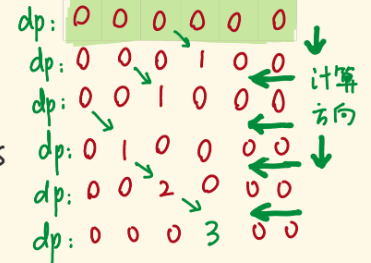 dp: 0 0 0 0 0 0
dp: 0 0 0 1 0 0
dp: 0 0 1 0 0 0
计算
方向
s
dp: 0 1 0 0 0 0
dp: 0 0 2 0 0 0
dp: 0 0 0 3 0 0